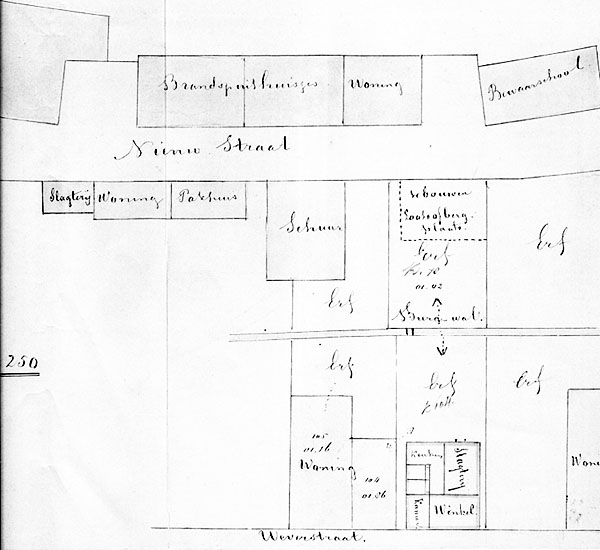 Brandspuithuisjes
Woning
Bewaarschool
Nieuw Straat
Slagterij
Woning
Pakhuis
Schuur
te bouwen
plaats.
Erf
Erf
01.42
Erf
Burg wal.
250
Erf
Erf
Erf
105
01.16
Woning
104
01.06
Keuken
Slagterij
Kamer
Winkel
Weverstraat.